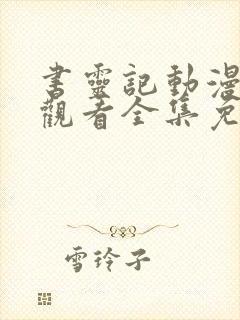 書靈記動漫
觀看全集免
雪玲子